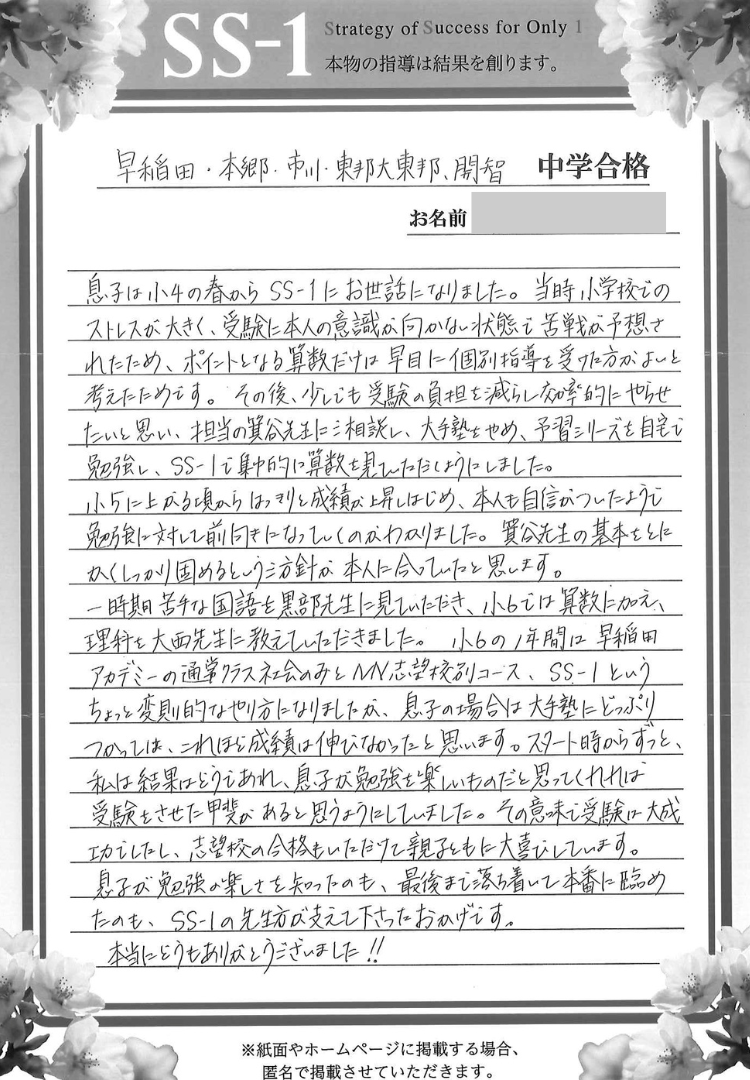 SS-1
Strategy of Success for Only 1
本物の指導は結果を創ります。
早稲田・本郷・市川・東邦大東邦、開智 中学合格
お名前
息子は小4の春からSS-1にお世話になりました。当時小学校での
ストレスが大きく、受験に本人の意識が向かない状態で苦戦が予想さ
れたため、ポイントとなる算数だけは早目に個別指導を受けた方がよいと
考えたためです。その後、少しでも受験の負担を減らし効率的にやらせ
たいと思い、担当の箕谷先生にご相談し、大手塾をやめ、予習シリーズを自宅で
勉強し、SS-1で集中的に算数を見ていただくようにしました。
小5に上がる頃からはっきりと成績が上昇しはじめ、本人も自信がついたようで
勉強に対して前向きになっていくのがわかりました。箕谷先生の基本をとに
かくしっかり固めるという方針が本人に合っていたと思います。
一時期苦手な国語を黒部先生に見ていただき、小6では算数に加え、
理科を大西先生に教えていただきました。小6の1年間は早稲田
アカデミーの通常クラス社会のみとNN志望校別コース、SS-1という
ちょっと変則的なやり方になりましたが、息子の場合は大手塾にどっぷり
つかっては、これほど成績は伸びなかったと思います。スタート時からずっと、
私は結果はどうであれ、息子が勉強を楽しいものだと思ってくれれば
受験をさせた甲斐があると思うようにしていました。その意味で受験は大成
功でしたし、志望校の合格もいただけて親子ともに大喜びしています。
息子が勉強の楽しさを知ったのも、最後まで落ち着いて本番に臨め
たのも、SS-1の先生方が支えて下さったおかげです。
本当にどうもありがとうございました!!
※紙面やホームページに掲載する場合、
匿名で掲載させていただきます。